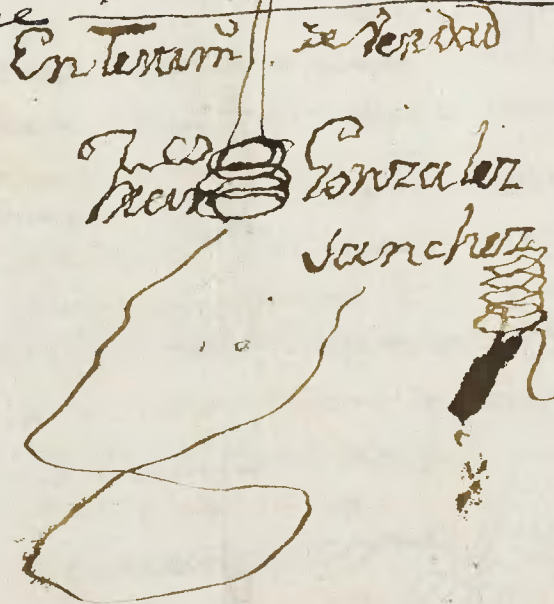 En Testam.º de Verdad
Fran.co Gonzalez
Sanchez